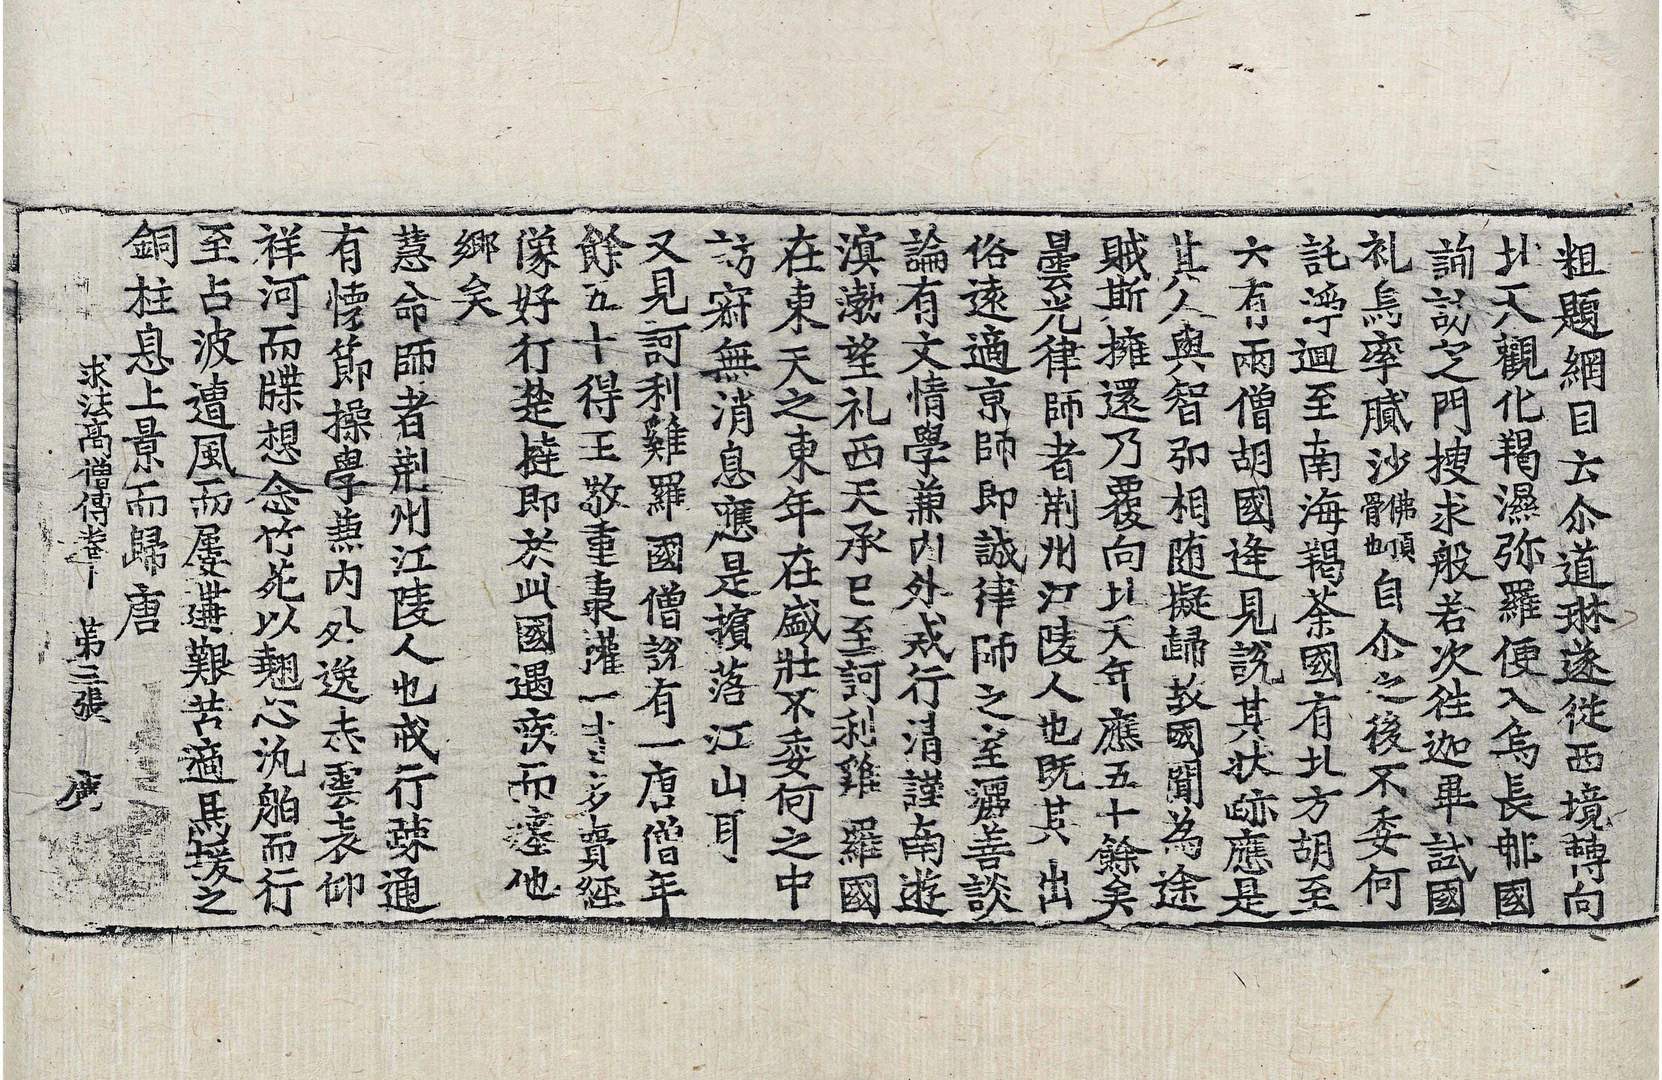 粗題綱目云尒道琳遂從西境轉向
北天觀化羯濕弥羅便入烏長那國
詢訪㝎門搜求般若次往迦畢試國
礼烏率膩沙佛頂骨也自尒之後不委何
託淨迴至南海羯荼國有北方胡至
云有兩僧胡國逢見說其状跡應是
其人與智弘相随擬歸故國聞為途
賊斯擁還乃覆向北天年應五十餘矣
曇光律師者荆州江陵人也既其出
俗遠適京師即誠律師之室灑善談
論有文情學兼內外戒行清謹南遊
溟渤望礼西天承已至訶利雞羅國
在東天之東年在盛壯不委何之中
訪寂無消息應是擯落江山耳
又見訶利雞羅國僧說有一唐僧年
餘五十得王敬重秉權一寺多賷經
像好行楚撻即於此國遇疾而
他
鄉矣
慧命師者荆州江陵人也戒行踈通
有懷節操學兼內外逸志雲表仰
祥河而牒想念竹苑以翹心汎舶而行
至占波遭風而屢遘艱苦適馬援之
銅柱息上景而歸唐
求法高僧傳卷下 第三張 廣